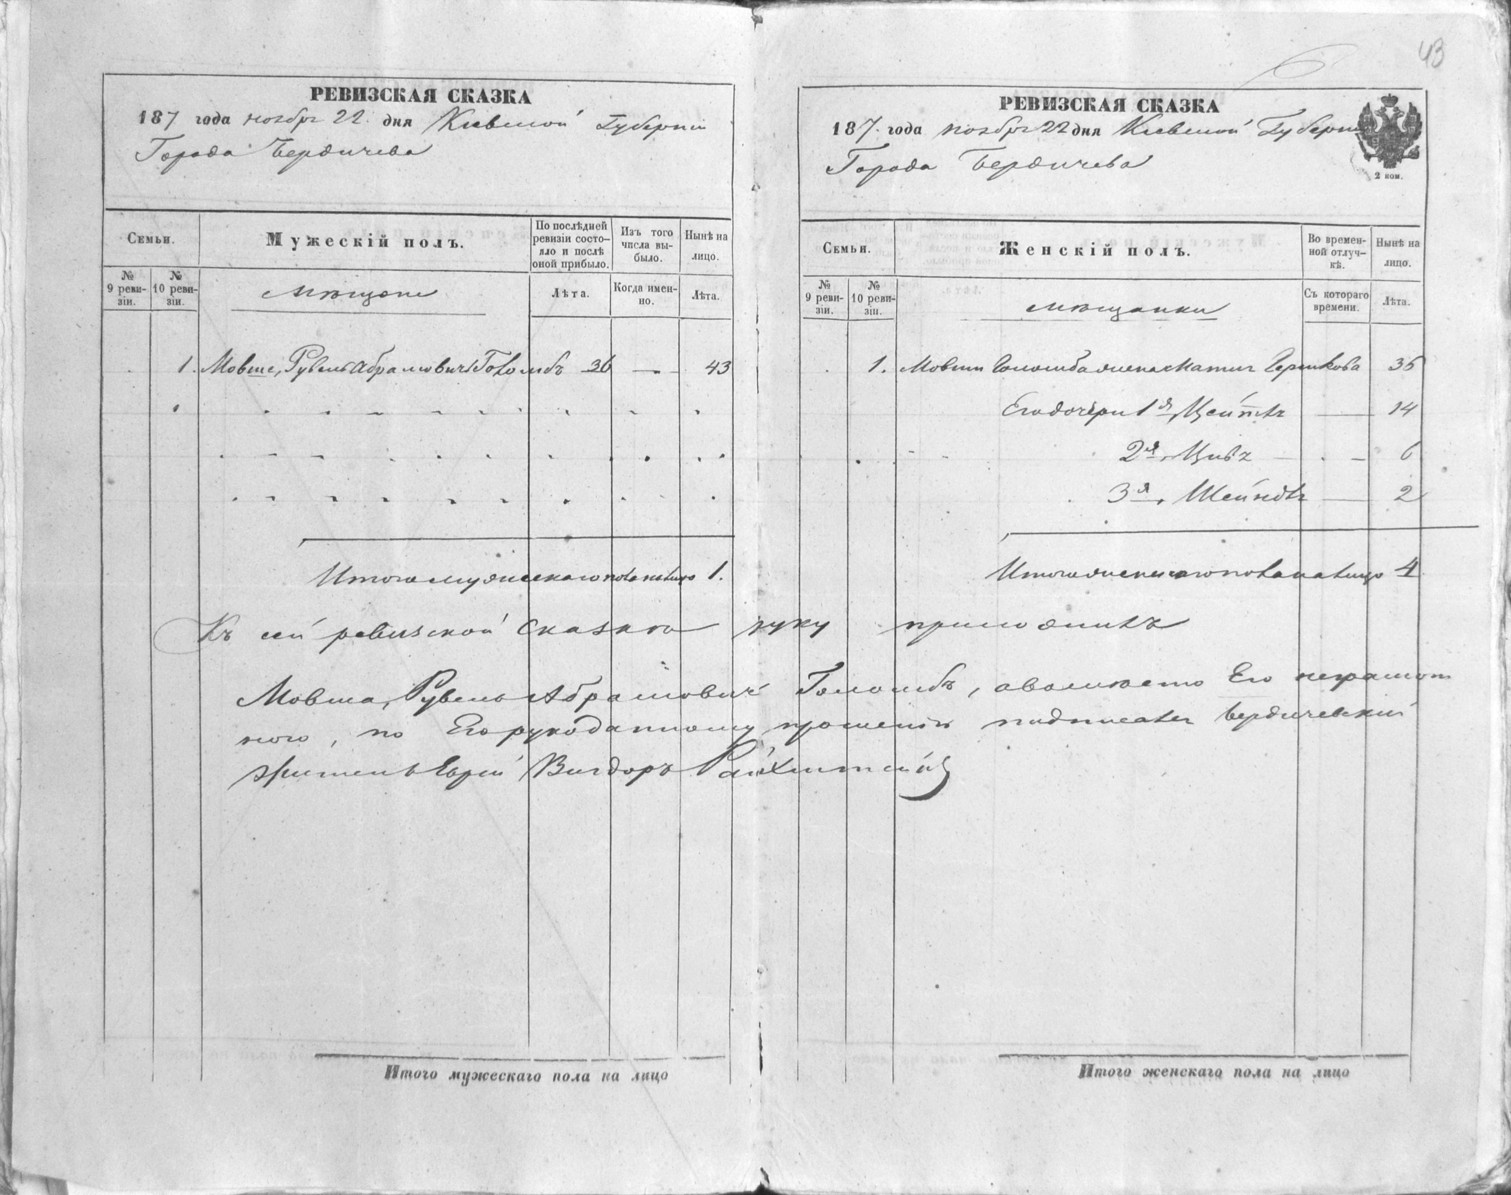 43
РЕВИЗСКАЯ СКАЗКА
187 года ноябр 22 дня Киевской Губернии
Города Бердичева
Семьи.
Мужескій полъ.
По послѣдней ревизіи состояло и послѣ оной прибыло.
Изъ того числа выбыло.
Нынѣ на лицо.
№ 9 ревизіи.
№ 10 ревизіи.
мѣщане
Лѣта.
Когда именно.
Лѣта.
1. Мовша, Рувель Абрамовичъ Голомбъ 36 — 43
Итого мужескаго пола на лицо 1.
РЕВИЗСКАЯ СКАЗКА
187 года ноябр 22 дня Киевской Губернии
Города Бердичева
2 коп.
Семьи.
Женскій полъ.
Во временной отлучкѣ.
Нынѣ на лицо.
№ 9 ревизіи.
№ 10 ревизіи.
мѣщанки
Съ котораго времени.
Лѣта.
1. Мовши Голомба жена Гершкова 36
Его дочери 1я, — 14
2я, Цивя — 6
3я, Шейндля — 2
Итого женскаго пола на лицо 4
Къ сей ревизской сказке руку приложилъ
Мовша, Рувель Абрамовичъ Голомбъ, а вместо Его неграмот
ного, по Его рукоданному прошению подписался Бердичевский
житель Еврей Вигдоръ
Итого мужескаго пола на лицо
Итого женскаго пола на лицо